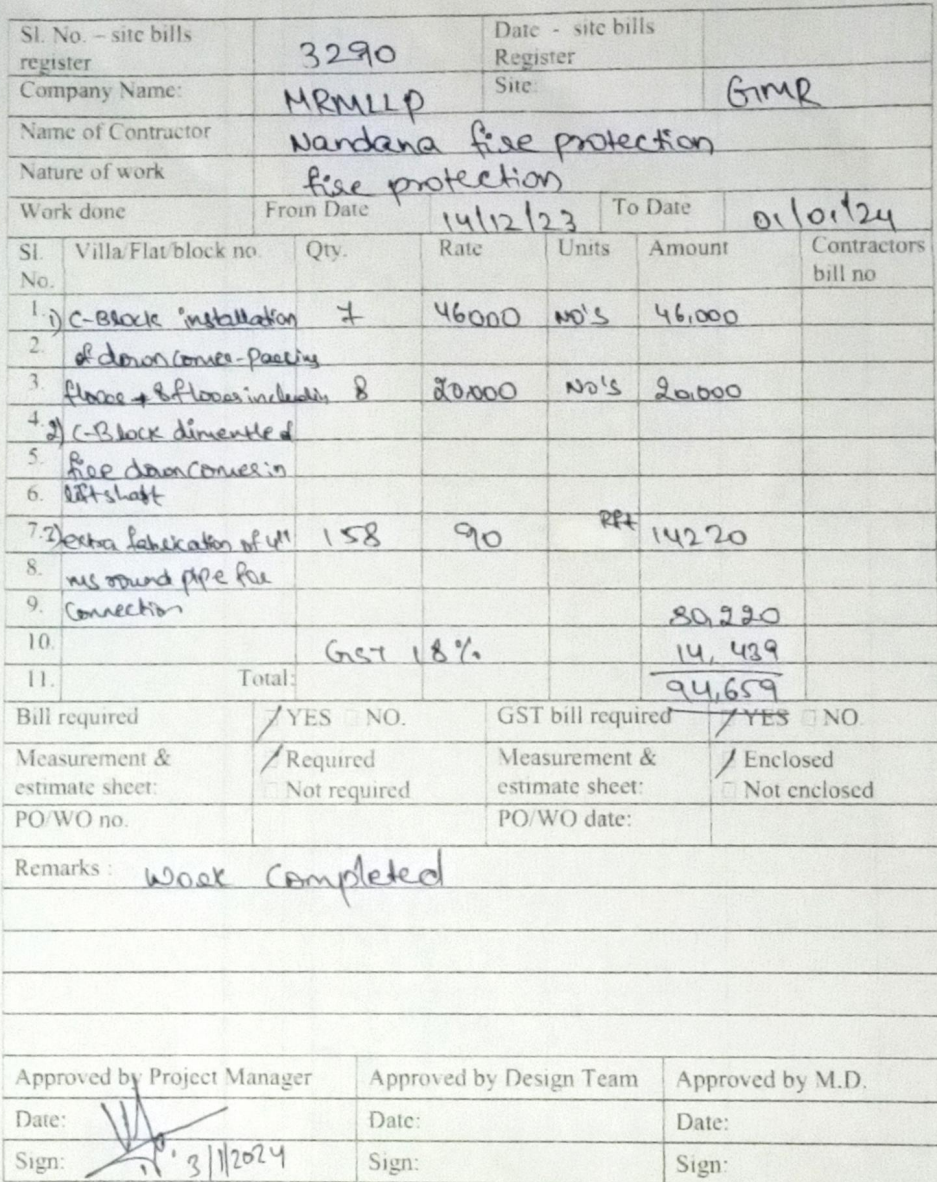 Sl. No. – site bills register 3290 Date - site bills Register
Company Name: MRMLLP Site: GMR
Name of Contractor Nandana fire protection
Nature of work fire protection
Work done From Date 14/12/23 To Date 01/01/24
Sl. No. Villa/Flat/block no. Qty. Rate Units Amount Contractors bill no
1. 1) C-Block installation 7 46000 NO'S 46,000
2. of down comer-Parking
3. floor + 8 floors including 8 20,000 NO'S 20,000
4. 2) C-Block dimentle of
5. fire down comer in
6. lift shaft
7. 3) extra fabrication of 4" 158 90 Rft 14220
8. ms round pipe for
9. Connection 80,220
10. GST 18% 14,439
11. Total: 94,659
Bill required YES NO. GST bill required YES NO
Measurement & estimate sheet: Required Not required Measurement & estimate sheet: Enclosed Not enclosed
PO/WO no. PO/WO date:
Remarks : Work Completed
Approved by Project Manager Approved by Design Team Approved by M.D.
Date: Date: Date:
Sign: 3/1/2024 Sign: Sign: